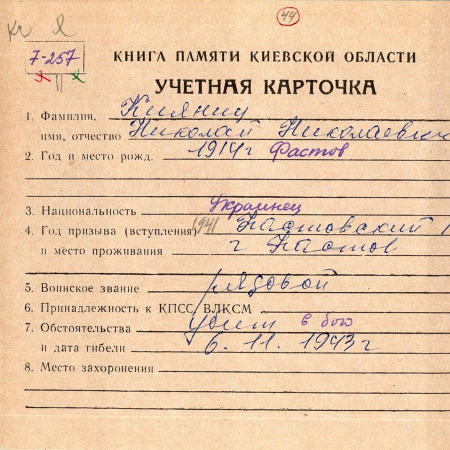 44
7-257
КНИГА ПАМЯТИ КИЕВСКОЙ ОБЛАСТИ
УЧЕТНАЯ КАРТОЧКА
1. Фамилия, Киянец
имя, отчество Николай Николаевич
2. Год и место рожд. 1914г Фастов
3. Национальность Украинец
4. Год призыва (вступления) 1941 Фастовский
и место проживания г Фастов
5. Воинское звание рядовой
6. Принадлежность к КПСС ВЛКСМ
7. Обстоятельства убит в бою
и дата гибели 6. 11. 1943г
8. Место захоронения